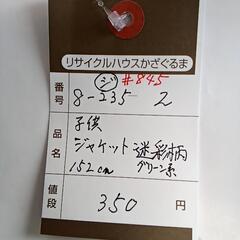 リサイクルハウスかざぐるま
ジ #845
番号 8-235-2
品名 子供
ジャケット 迷彩柄
152cm グリーン系
値段 350円